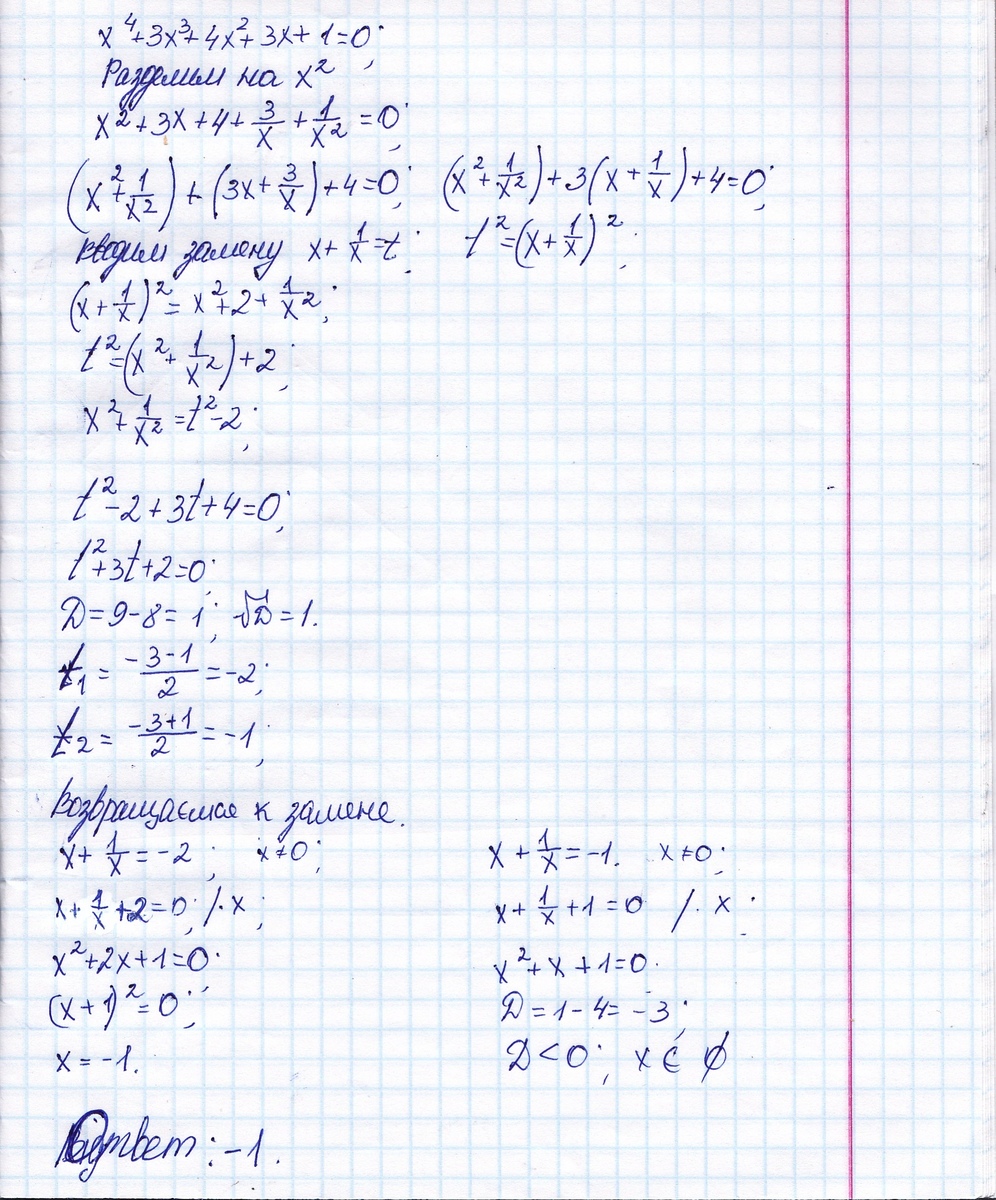 x⁴+3x³+4x²+3x+1=0;
Разделим на x²
x²+3x+4+3/x+1/x²=0;
(x²+1/x²)+(3x+3/x)+4=0; (x²+1/x²)+3(x+1/x)+4=0;
вводим замену x+1/x=t; t²=(x+1/x)²;
(x+1/x)²=x²+2+1/x²;
t²=(x²+1/x²)+2;
x²+1/x²=t²-2;
t²-2+3t+4=0;
t²+3t+2=0;
D=9-8=1; √D=1.
t₁=(-3-1)/2=-2;
t₂=(-3+1)/2=-1;
Возвращаємся к замене.
x+1/x=-2; x≠0; x+1/x=-1. x≠0;
x+1/x+2=0; /·x; x+1/x+1=0 /·x;
x²+2x+1=0; x²+x+1=0.
(x+1)²=0; D=1-4=-3;
x=-1. D<0; x∈∅
Ответ: -1.